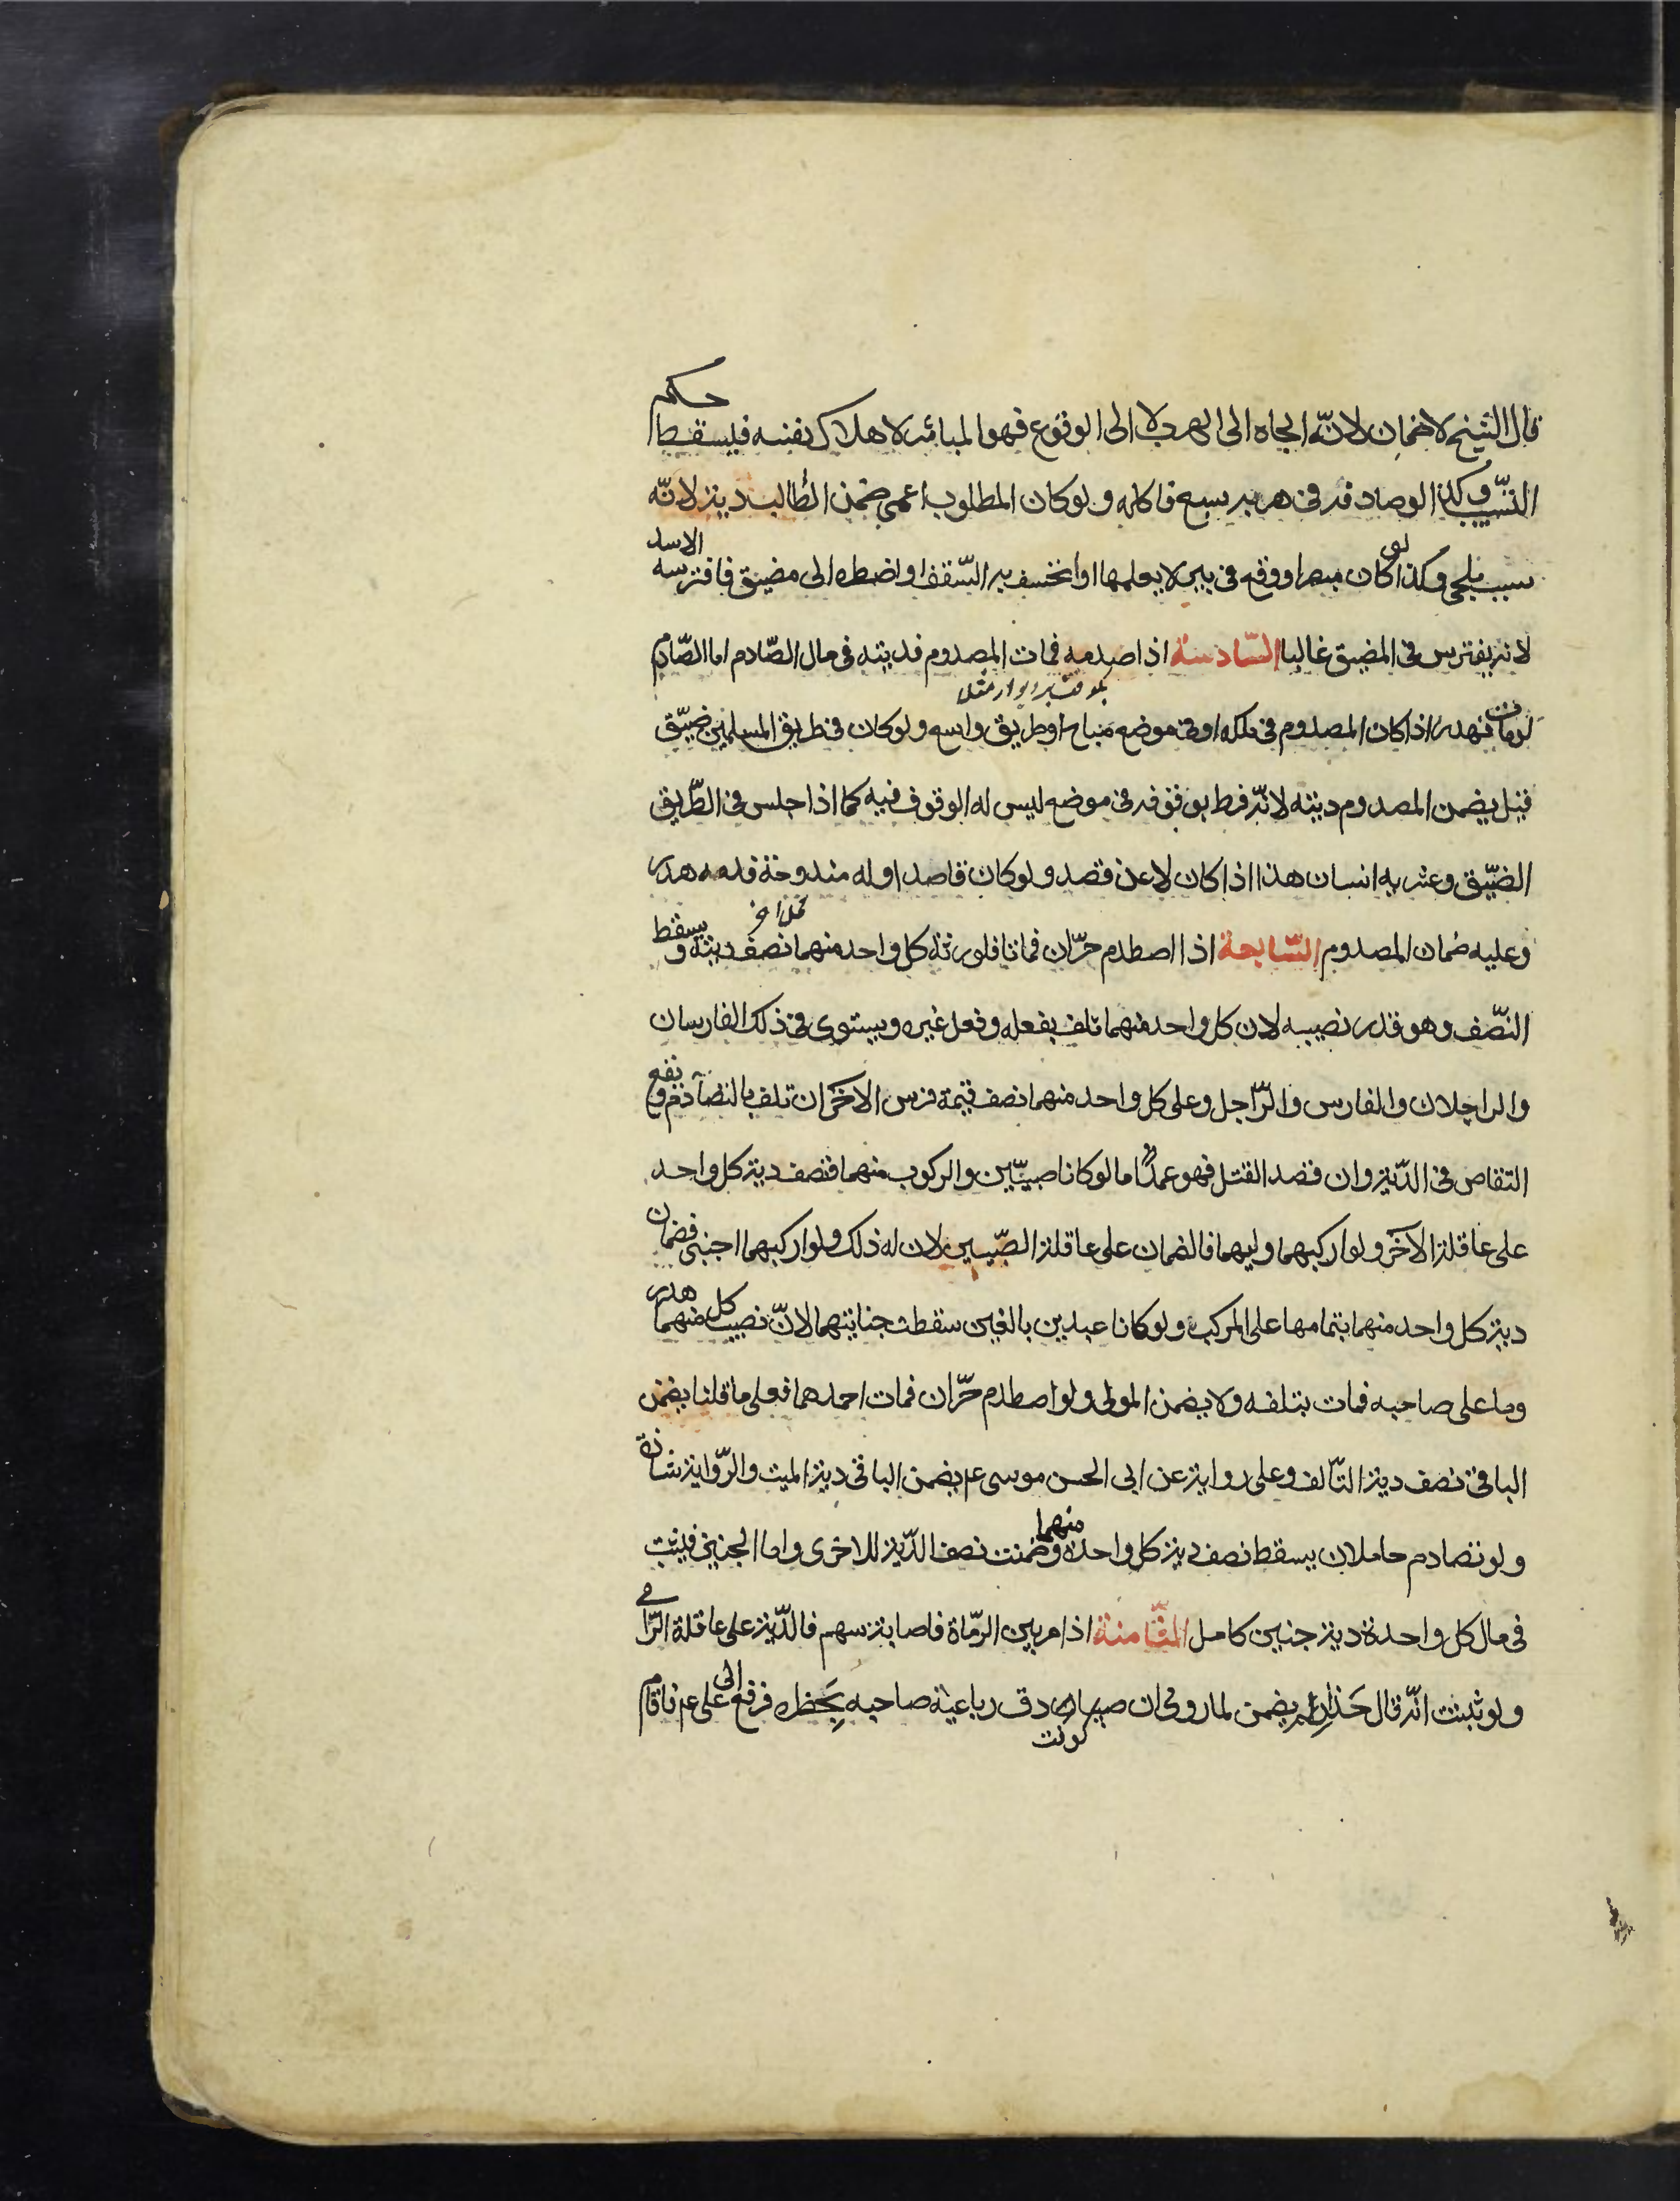 قال الشيخ لا ضمان لانّه الجاه الى الهرب لا الى الوقوع فهو المباشر لاهلاك نفسه فيسقط حكم
التسبّب وكذا لو صادفه فى هربه سبع فاكله ولو كان المطلوب اعمى ضمن الطالب ديته لانّه
سبب ملجى وكذا لو كان مبصرا ووقع فى بير لا يعلمها او انخسف به السّقف او اضطره الى مضيق فافترسه الاسد
لانه يفترس فى المضيق غالبا السّادسة اذا صدمه فمات المصدوم فديته فى مال الصّادم اما الصّادم
لو مات فهدر اذا كان المصدوم فى ملكه او فى موضع مباح او طريق واسع ولو كان فى طريق المسلمين ضيّق
قيل يضمن المصدوم ديته لانّه فرط بوقوفه فى موضع ليس له الوقوف فيه كما اذا جلس فى الطّريق
الضيّق وعثر به انسان هذا اذا كان لا عن قصد ولو كان قاصدا وله مندوحة فدمه هدر
وعليه ضمان المصدوم السّابعة اذا اصطدم حرّان فماتا فلورثة كل واحد منهما نصف ديته ويسقط
النّصف وهو قدر نصيبه لان كل واحد منهما تلف بفعله وفعل غيره ويستوى فى ذلك الفارسان
والراجلان والفارس والرّاجل وعلى كل واحد منهما نصف قيمة فرس الاخر ان تلف بالتصادم ويقع
التقاص فى الدّية وان قصد القتل فهو عمدٌ اما لو كانا صبيّين والركوب منهما فنصف دية كل واحد
على عاقلة الاخر ولو اركبهما وليهما فالضمان على عاقلة الصّبيين لان له ذلك ولو اركبهما اجنبى فضمان
دية كل واحد منهما بتمامها على المركب ولو كانا عبدين بالغين سقطت جنايتهما لانّ نصيب كل منهما هدر
وما على صاحبه فمات بتلفه ولا يضمن المولى ولو اصطدم حرّان فمات احدهما فعلى ما قلنا يضمن
الباقى نصف دية التّالف وعلى رواية عن ابى الحسن موسى عم يضمن الباقى دية الميت والرّواية شاذة
ولو تصادم حاملان يسقط نصف دية كل واحدة منهما وضمنت نصف الدّية للاخرى واما الجنين فيثبت
فى مال كل واحدة دية جنين كامل الثّامنة اذا مر بين الرّماة فاصابه سهم فالدّية على عاقلة الرّامى
ولو ثبت انّه قال حَذارِ لم يضمن لما روى ان صبيا دق رباعية صاحبه بِخطره فرفع الى على عم فاقام